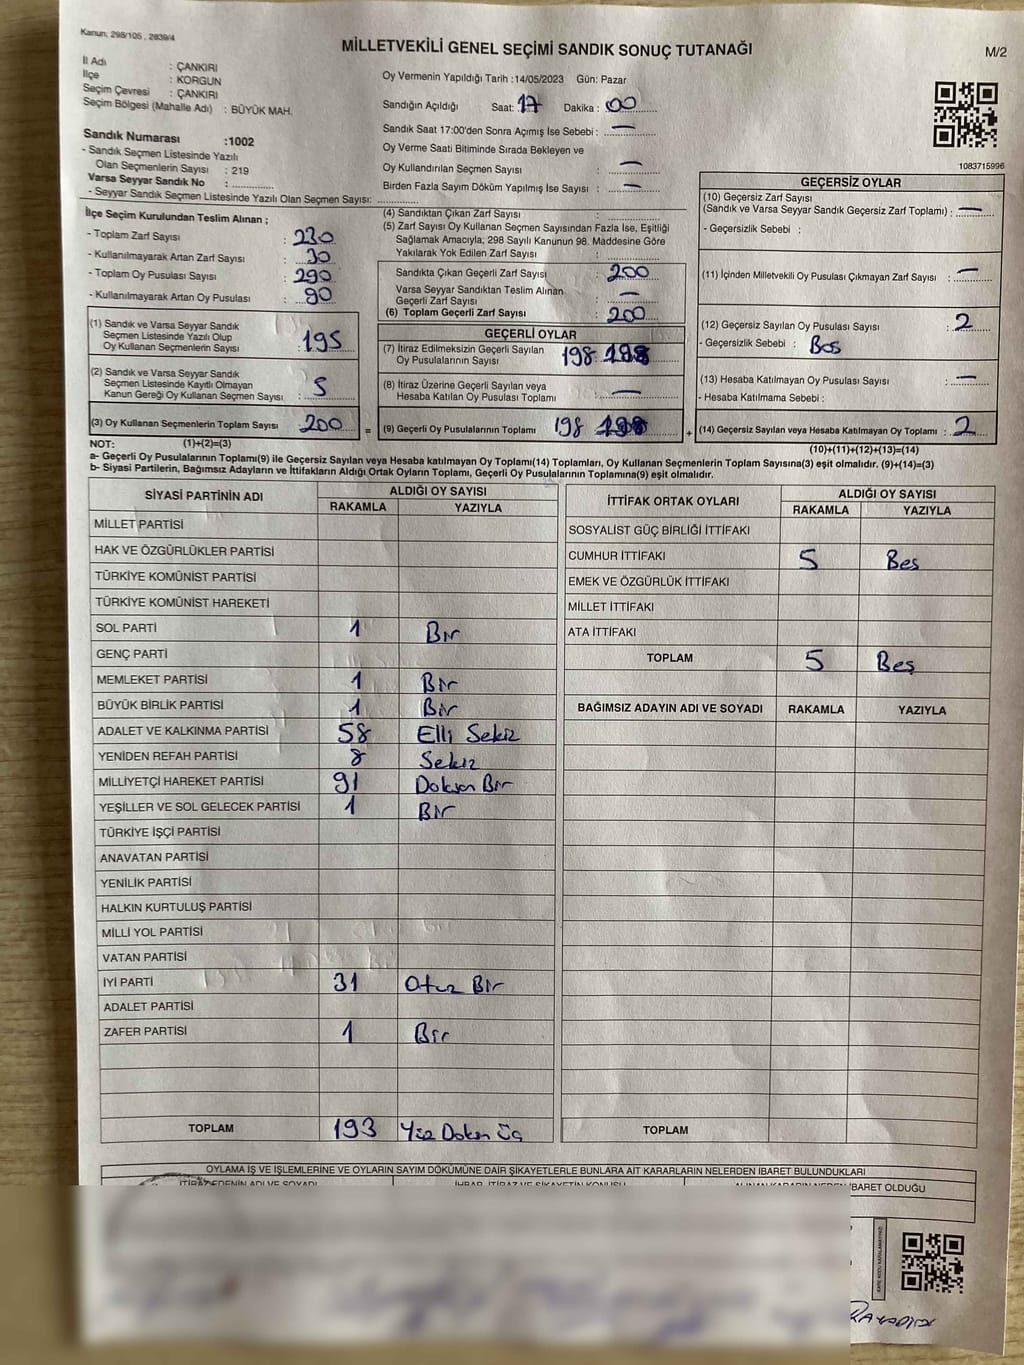 Kanun: 298/105 , 2839/4
MİLLETVEKİLİ GENEL SEÇİMİ SANDIK SONUÇ TUTANAĞI
M/2
İl Adı : ÇANKIRI
İlçe : KORGUN
Seçim Çevresi : ÇANKIRI
Seçim Bölgesi (Mahalle Adı) : BÜYÜK MAH.
Sandık Numarası :1002
- Sandık Seçmen Listesinde Yazılı
Olan Seçmenlerin Sayısı : 219
Varsa Seyyar Sandık No :
- Seyyar Sandık Seçmen Listesinde Yazılı Olan Seçmen Sayısı:
Oy Vermenin Yapıldığı Tarih :14/05/2023 Gün: Pazar
Sandığın Açıldığı Saat: 17 Dakika : 00
Sandık Saat 17:00'den Sonra Açımış İse Sebebi : —
Oy Verme Saati Bitiminde Sırada Bekleyen ve
Oy Kullandırılan Seçmen Sayısı : —
Birden Fazla Sayım Döküm Yapılmış İse Sayısı : —
1083715996
İlçe Seçim Kurulundan Teslim Alınan ;
- Toplam Zarf Sayısı : 230
- Kullanılmayarak Artan Zarf Sayısı : 30
- Toplam Oy Pusulası Sayısı : 290
- Kullanılmayarak Artan Oy Pusulası : 90
(1) Sandık ve Varsa Seyyar Sandık
Seçmen Listesinde Yazılı Olup
Oy Kullanan Seçmenlerin Sayısı : 195
(2) Sandık ve Varsa Seyyar Sandık
Seçmen Listesinde Kayıtlı Olmayan
Kanun Gereği Oy Kullanan Seçmen Sayısı : 5
(3) Oy Kullanan Seçmenlerin Toplam Sayısı : 200
(4) Sandıktan Çıkan Zarf Sayısı :
(5) Zarf Sayısı Oy Kullanan Seçmen Sayısından Fazla İse, Eşitliği
Sağlamak Amacıyla; 298 Sayılı Kanunun 98. Maddesine Göre
Yakılarak Yok Edilen Zarf Sayısı :
Sandıkta Çıkan Geçerli Zarf Sayısı : 200
Varsa Seyyar Sandıktan Teslim Alınan
Geçerli Zarf Sayısı : —
(6) Toplam Geçerli Zarf Sayısı : 200
GEÇERLİ OYLAR
(7) İtiraz Edilmeksizin Geçerli Sayılan
Oy Pusulalarının Sayısı : 198 198
(8) İtiraz Üzerine Geçerli Sayılan veya
Hesaba Katılan Oy Pusulası Toplamı : —
= (9) Geçerli Oy Pusulalarının Toplamı : 198 198
GEÇERSİZ OYLAR
(10) Geçersiz Zarf Sayısı
(Sandık ve Varsa Seyyar Sandık Geçersiz Zarf Toplamı) : —
- Geçersizlik Sebebi :
(11) İçinden Milletvekili Oy Pusulası Çıkmayan Zarf Sayısı : —
(12) Geçersiz Sayılan Oy Pusulası Sayısı : 2
- Geçersizlik Sebebi : Bos
(13) Hesaba Katılmayan Oy Pusulası Sayısı : —
- Hesaba Katılmama Sebebi :
+ (14) Geçersiz Sayılan veya Hesaba Katılmayan Oy Toplamı : 2
NOT: (1)+(2)=(3) (10)+(11)+(12)+(13)=(14)
a- Geçerli Oy Pusulalarının Toplamı(9) ile Geçersiz Sayılan veya Hesaba katılmayan Oy Toplamı(14) Toplamları, Oy Kullanan Seçmenlerin Toplam Sayısına(3) eşit olmalıdır. (9)+(14)=(3)
b- Siyasi Partilerin, Bağımsız Adayların ve İttifakların Aldığı Ortak Oyların Toplamı, Geçerli Oy Pusulalarının Toplamına(9) eşit olmalıdır.
SİYASİ PARTİNİN ADI ALDIĞI OY SAYISI
RAKAMLA YAZIYLA
MİLLET PARTİSİ
HAK VE ÖZGÜRLÜKLER PARTİSİ
TÜRKİYE KOMÜNİST PARTİSİ
TÜRKİYE KOMÜNİST HAREKETİ
SOL PARTİ 1 Bir
GENÇ PARTİ
MEMLEKET PARTİSİ 1 Bir
BÜYÜK BİRLİK PARTİSİ 1 Bir
ADALET VE KALKINMA PARTİSİ 58 Elli Sekiz
YENİDEN REFAH PARTİSİ 8 Sekiz
MİLLİYETÇİ HAREKET PARTİSİ 91 Doksan Bir
YEŞİLLER VE SOL GELECEK PARTİSİ 1 Bir
TÜRKİYE İŞÇİ PARTİSİ
ANAVATAN PARTİSİ
YENİLİK PARTİSİ
HALKIN KURTULUŞ PARTİSİ
MİLLİ YOL PARTİSİ
VATAN PARTİSİ
İYİ PARTİ 31 Otuz Bir
ADALET PARTİSİ
ZAFER PARTİSİ 1 Bir
TOPLAM 193 Yüz Doksn Üç
İTTİFAK ORTAK OYLARI ALDIĞI OY SAYISI
RAKAMLA YAZIYLA
SOSYALİST GÜÇ BİRLİĞİ İTTİFAKI
CUMHUR İTTİFAKI 5 Bes
EMEK VE ÖZGÜRLÜK İTTİFAKI
MİLLET İTTİFAKI
ATA İTTİFAKI
TOPLAM 5 Beş
BAĞIMSIZ ADAYIN ADI VE SOYADI RAKAMLA YAZIYLA
TOPLAM
OYLAMA İŞ VE İŞLEMLERİNE VE OYLARIN SAYIM DÖKÜMÜNE DAİR ŞİKAYETLERLE BUNLARA AİT KARARLARIN NELERDEN İBARET BULUNDUKLARI
İTİRAZ EDENİN ADI VE SOYADI İHBAR, İTİRAZ VE ŞİKAYETİN KONUSU ALINAN KARARIN NEDEN İBARET OLDUĞU